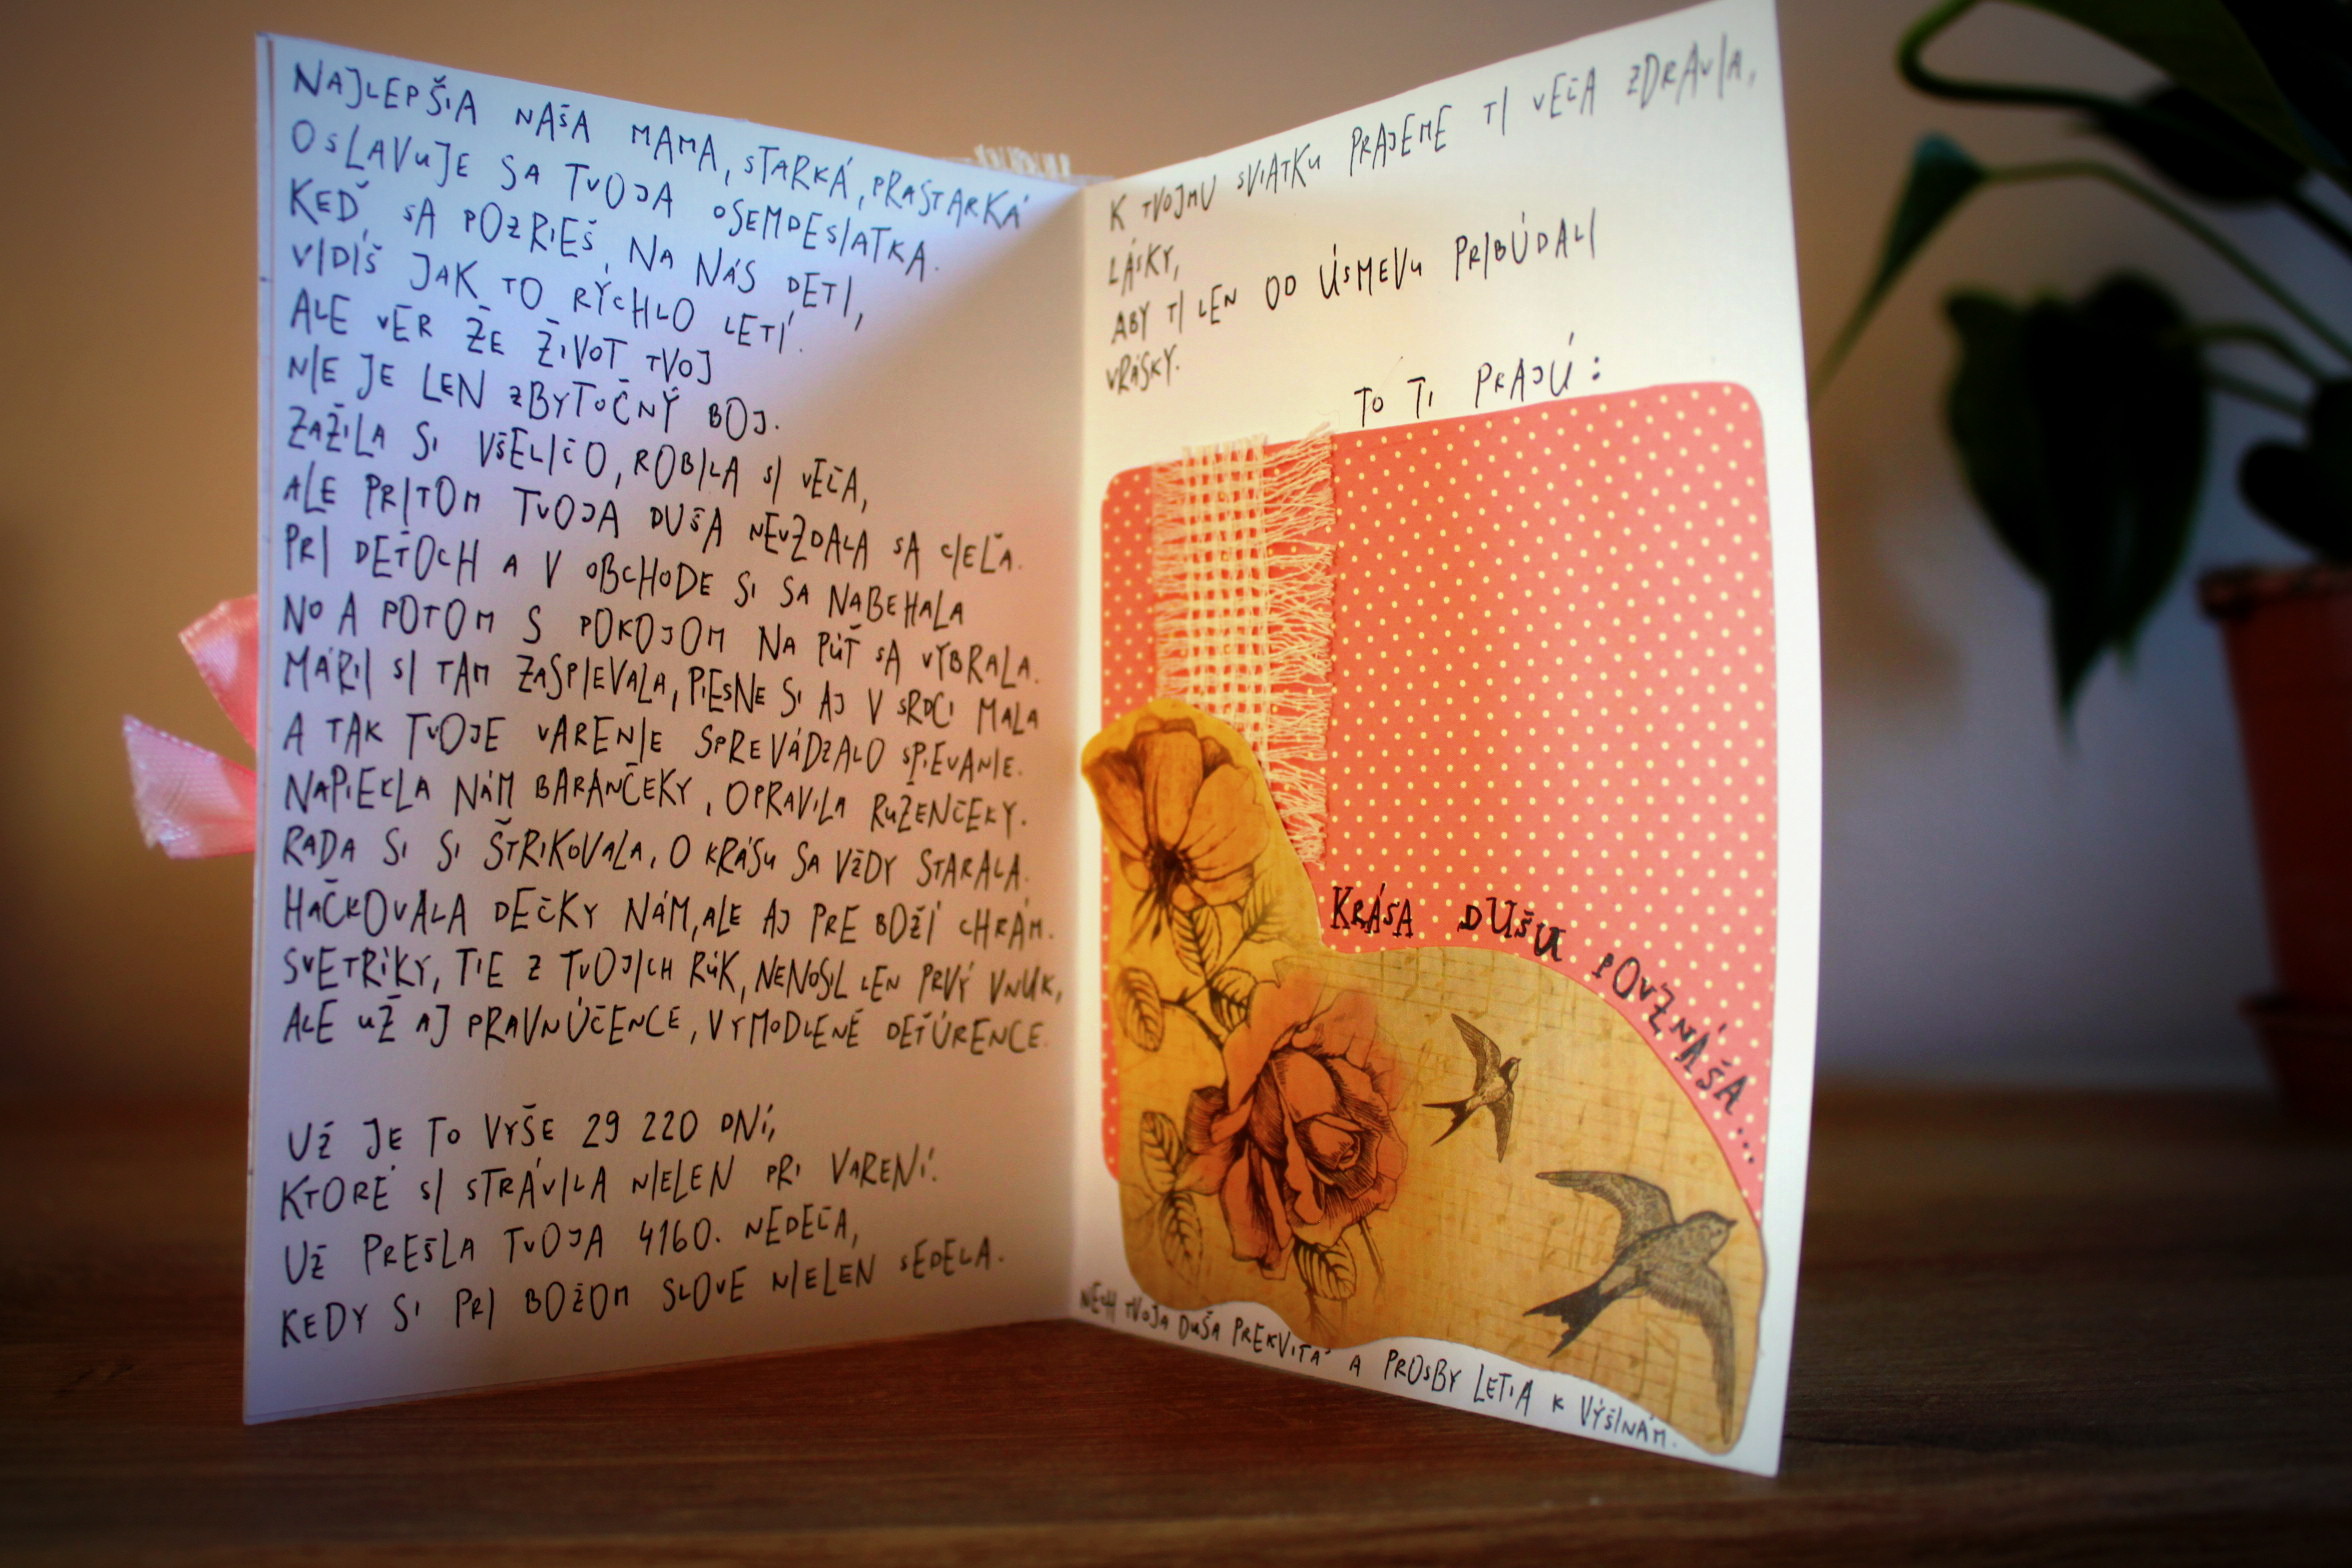 NAJLEPŠIA NAŠA MAMA, STARKÁ, PRASTARKÁ
OSLAVUJE SA TVOJA OSEMDESIATKA.
KEĎ SA POZRIEŠ NA NÁS DETI,
VIDÍŠ JAK TO RÝCHLO LETÍ.
ALE VER ŽE ŽIVOT TVOJ
NIE JE LEN ZBYTOČNÝ BOJ.
ZAŽILA SI VŠELIČO, ROBILA SI VEĽA,
ALE PRITOM TVOJA DUŠA NEVZDALA SA CIEĽA.
PRI DEŤOCH A V OBCHODE SI SA NABEHALA
NO A POTOM S POKOJOM NA PÚŤ SA VYBRALA.
MÁRII SI TAM ZASPIEVALA, PIESNE SI AJ V SRDCI MALA
A TAK TVOJE VARENIE SPREVÁDZALO SPIEVANIE.
NAPIEKLA NÁM BARANČEKY, OPRAVILA RUŽENČEKY.
RADA SI SI ŠTRIKOVALA, O KRÁSU SA VŽDY STARALA.
HAČKOVALA DEČKY NÁM, ALE AJ PRE BOŽÍ CHRÁM.
SVETRÍKY, TIE Z TVOJICH RÚK, NENOSIL LEN PRVÝ VNUK,
ALE UŽ AJ PRAVNÚČENCE, VYMODLENÉ DEŤÚRENCE.
UŽ JE TO VYŠE 29 220 DNÍ,
KTORÉ SI STRÁVILA NIELEN PRI VARENÍ.
UŽ PREŠLA TVOJA 4160. NEDEĽA,
KEDY SI PRI BOŽOM SLOVE NIELEN SEDELA.
K TVOJMU SVIATKU PRAJEME TI VEĽA ZDRAVIA,
LÁSKY,
ABY TI LEN OD ÚSMEVU PRIBÚDALI
VRÁSKY.
TO TI PRAJÚ:
KRÁSA DUŠU POVZNÁŠA...
NECH TVOJA DUŠA PREKVITÁ A PROSBY LETIA K VÝŠINÁM.